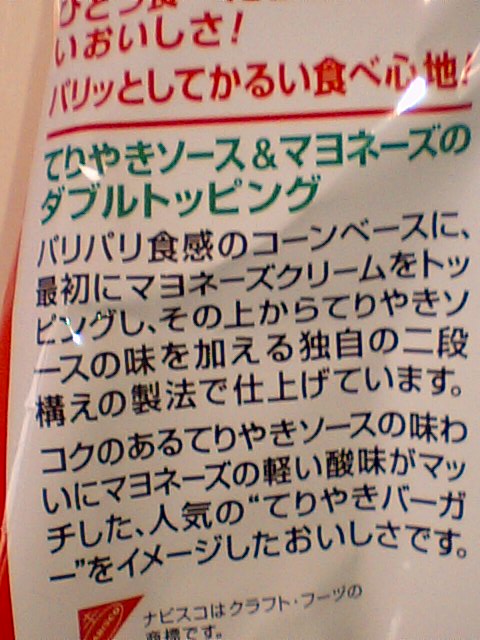 ひとつ食
いおいしさ!
パリッとしてかるい食べ心地!
てりやきソース&マヨネーズの
ダブルトッピング
パリパリ食感のコーンベースに、
最初にマヨネーズクリームをトッ
ピングし、その上からてりやきソ
ースの味を加える独自の二段
構えの製法で仕上げています。
コクのあるてりやきソースの味わ
いにマヨネーズの軽い酸味がマッ
チした、人気の“てりやきバーガ
ー”をイメージしたおいしさです。
ナビスコはクラフト・フーヅの
商標です。
NABISCO